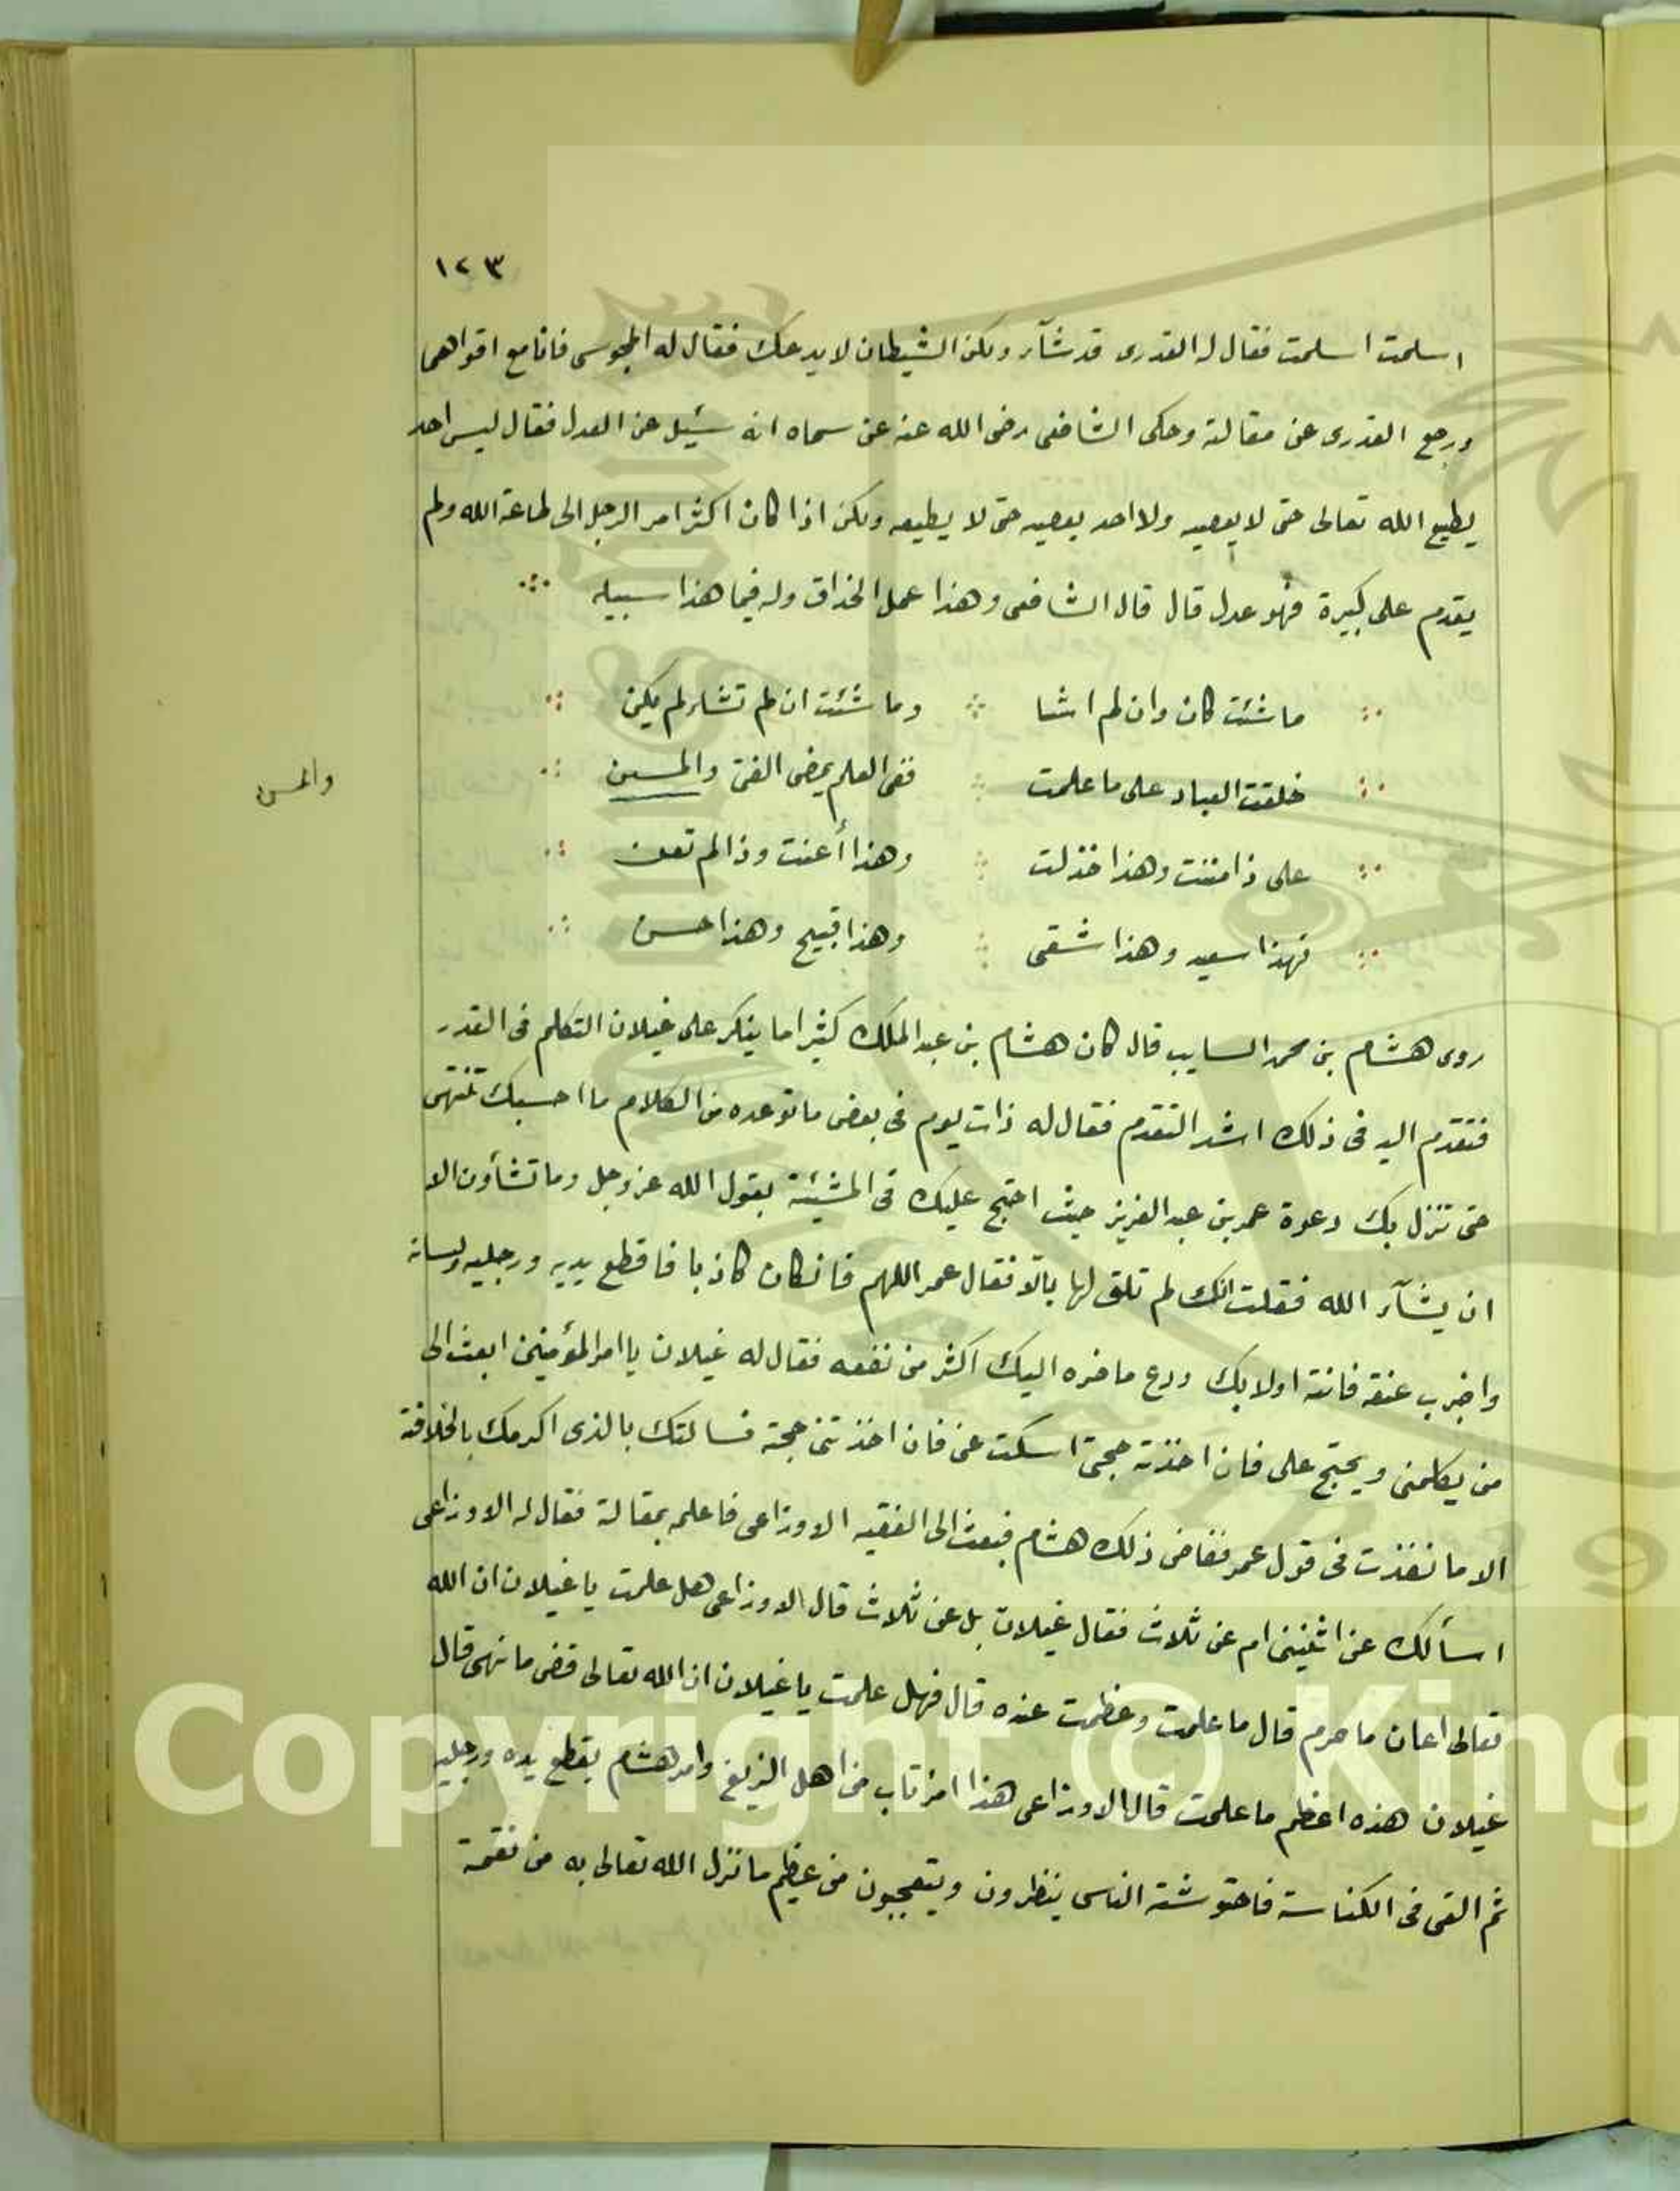 ١٢٣
اسلمت اسلمت فقال له القدرى قد شآء ولكن الشيطان لا يدعك فقال له المجوسى فانا مع اقواهما
ورجع القدرى عن مقالته وحكى الشافعى رضى الله عنه عن سماه انه سئيل عن العدل فقال ليس احد
يطيع الله تعالى حتى لا يعصيه ولا احد يعصيه حتى لا يطيعه ولكن اذا كان اكثر امر الرجل الى طاعة الله ولم
يقدم على كبيرة فهو عدل قال قال الشافعى وهذا عمل الحذاق وله فيما هذا سبيله
ما شئت كان وان لم اشا وما شئت ان لم تشاء لم يكن
خلقت العباد على ما علمت ففى العلم يمضى الفتى والمسين
والمسن
على ذا مننت وهذا خذلت وهذا أعنت وذا لم تعن
فهذا سعيد وهذا شقى وهذا قبيح وهذا حسن
روى هشام بن محمد السايب قال كان هشام بن عبد الملك كثيرا ما ينكر على غيلان التكلم فى القدر
فتقدم اليه فى ذلك اشد التقدم فقال له ذات يوم فى بعض ما توعده من الكلام ما احسبك تنتهى
حتى تنزل بك دعوة عمر بن عبد العزيز حيث احتج عليك فى المشيئة بقول الله عز وجل وما تشأون الا
ان يشآء الله فقلت انك لم تلق لها بالا فقال عمر اللهم فانكان كاذبا فاقطع يديه ورجليه ولسانه
واضرب عنقه فانته اولا بك ودع ما ضره اليك اكثر من نفعه فقال له غيلان يا امر المؤمنين ابعث الى
من يكلمنى ويحتج على فان اخذته حجتى اسكت عنى فان اخذتنى حجته فسالتك بالذى اكرمك بالخلافة
الا ما نفذت فى قول عمر فغاض ذلك هشام فبعث الى الفقيه الاوزاعى فاعلمه بمقالته فقال له الاوزاعى
اسألك عن اثنين ام عن ثلاث فقال غيلان بل عن ثلاث قال الاوزاعى هل علمت يا غيلان ان الله
تعالى اعان ما حرم قال ما علمت وعظمت عنده قال فهل علمت يا غيلان ان الله تعالى قضى ما نهى قال
غيلان هذه اعظم ما علمت قال الاوزاعى هذا امرتاب من اهل الزيغ وامر هشام بقطع يده ورجليه
ثم القى فى الكناسة فاحتوشته الناس ينظرون ويتعجبون من عظيم ما نزل الله تعالى به من نقمته
Copyright © King